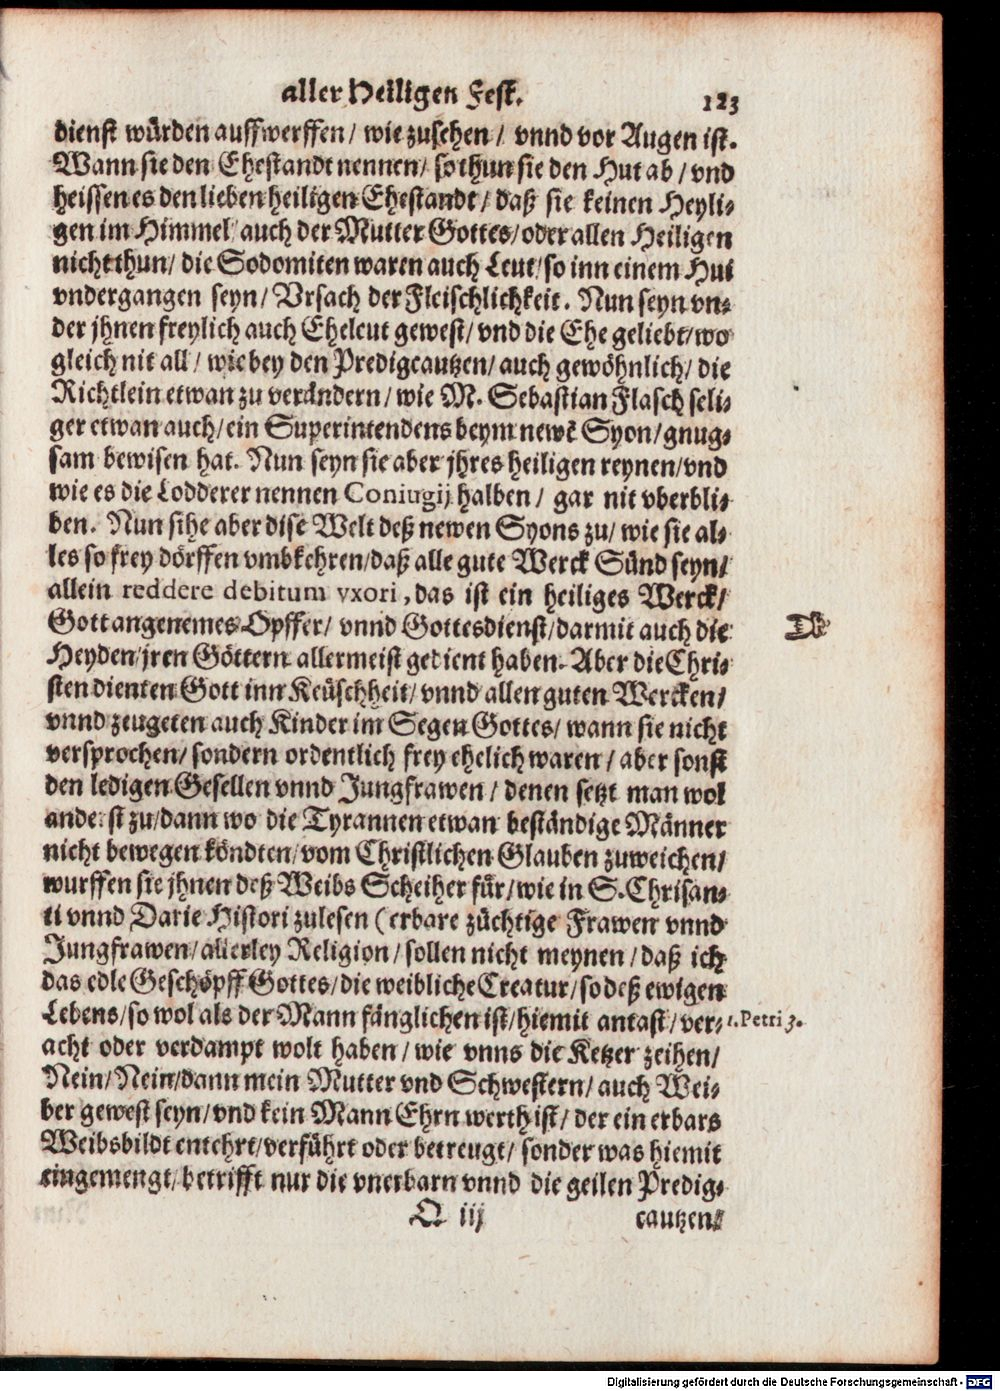 aller Heiligen Fest. 123
dienst würden auffwerffen/ wie zusehen/ vnnd vor Augen ist.
Wann sie den Ehestandt nennen/ so thun sie den Hut ab/ vnd
heissen es den lieben heiligen Ehestandt/ daß sie keinen Heyli-
gen im Himmel/ auch der Mutter Gottes/ oder allen Heiligen
nicht thun/ die Sodomiten waren auch Leut/ so inn einem Hui
vndergangen seyn/ Vrsach der Fleischlichkeit. Nun seyn vn-
der jhnen freylich auch Eheleut gewest/ vnd die Ehe geliebt/ wo
gleich nit all/ wie bey den Predigcautzen/ auch gewöhnlich/ die
Richtlein etwan zu verändern/ wie M. Sebastian Flasch seli-
ger etwan auch/ ein Superintendens beym newē Syon/ gnug-
sam bewisen hat. Nun seyn sie aber jhres heiligen reynen/ vnd
wie es die Lodderer nennen Coniugij halben/ gar nit vberbli-
ben. Nun sihe aber dise Welt deß newen Syons zu/ wie sie al-
les so frey dörffen vmbkehren/ daß alle gute Werck Sünd seyn/
allein reddere debitum vxori, das ist ein heiliges Werck/
Gott angenemes Opffer/ vnnd Gottesdienst/ darmit auch die
Heyden/ jren Göttern allermeist gedient haben. Aber die Chri-
sten dienten Gott inn Keüschheit/ vnnd allen guten Wercken/
vnnd zeugeten auch Kinder im Segen Gottes/ wann sie nicht
versprochen/ sondern ordentlich frey ehelich waren/ aber sonst
den ledigen Gesellen vnnd Jungfrawen/ denen setzt man wol
anderst zu/ dann wo die Tyrannen etwan beständige Männer
nicht bewegen köndten/ vom Christlichen Glauben zuweichen/
wurffen sie jhnen deß Weibs Scheiher für/ wie in S. Chrisan-
ti vnnd Darie Histori zulesen (erbare züchtige Frawen vnnd
Jungfrawen/ allerley Religion/ sollen nicht meynen/ daß ich
das edle Geschöpff Gottes/ die weibliche Creatur/ so deß ewigen
Lebens/ so wol als der Mann fänglichen ist/ hiemit antast/ ver- 1. Petri 3.
acht oder verdampt wolt haben/ wie vnns die Ketzer zeihen/
Nein/ Nein/ dann mein Mutter vnd Schwestern/ auch Wei-
ber gewest seyn/ vnd kein Mann Ehrn werth ist/ der ein erbars
Weibsbildt entehrt/ verführt oder betreugt/ sonder was hiemit
eingemengt/ betrifft nur die vnerbarn vnnd die geilen Predig-
Q iij cautzen/
Digitalisierung gefördert durch die Deutsche Forschungsgemeinschaft - DFG